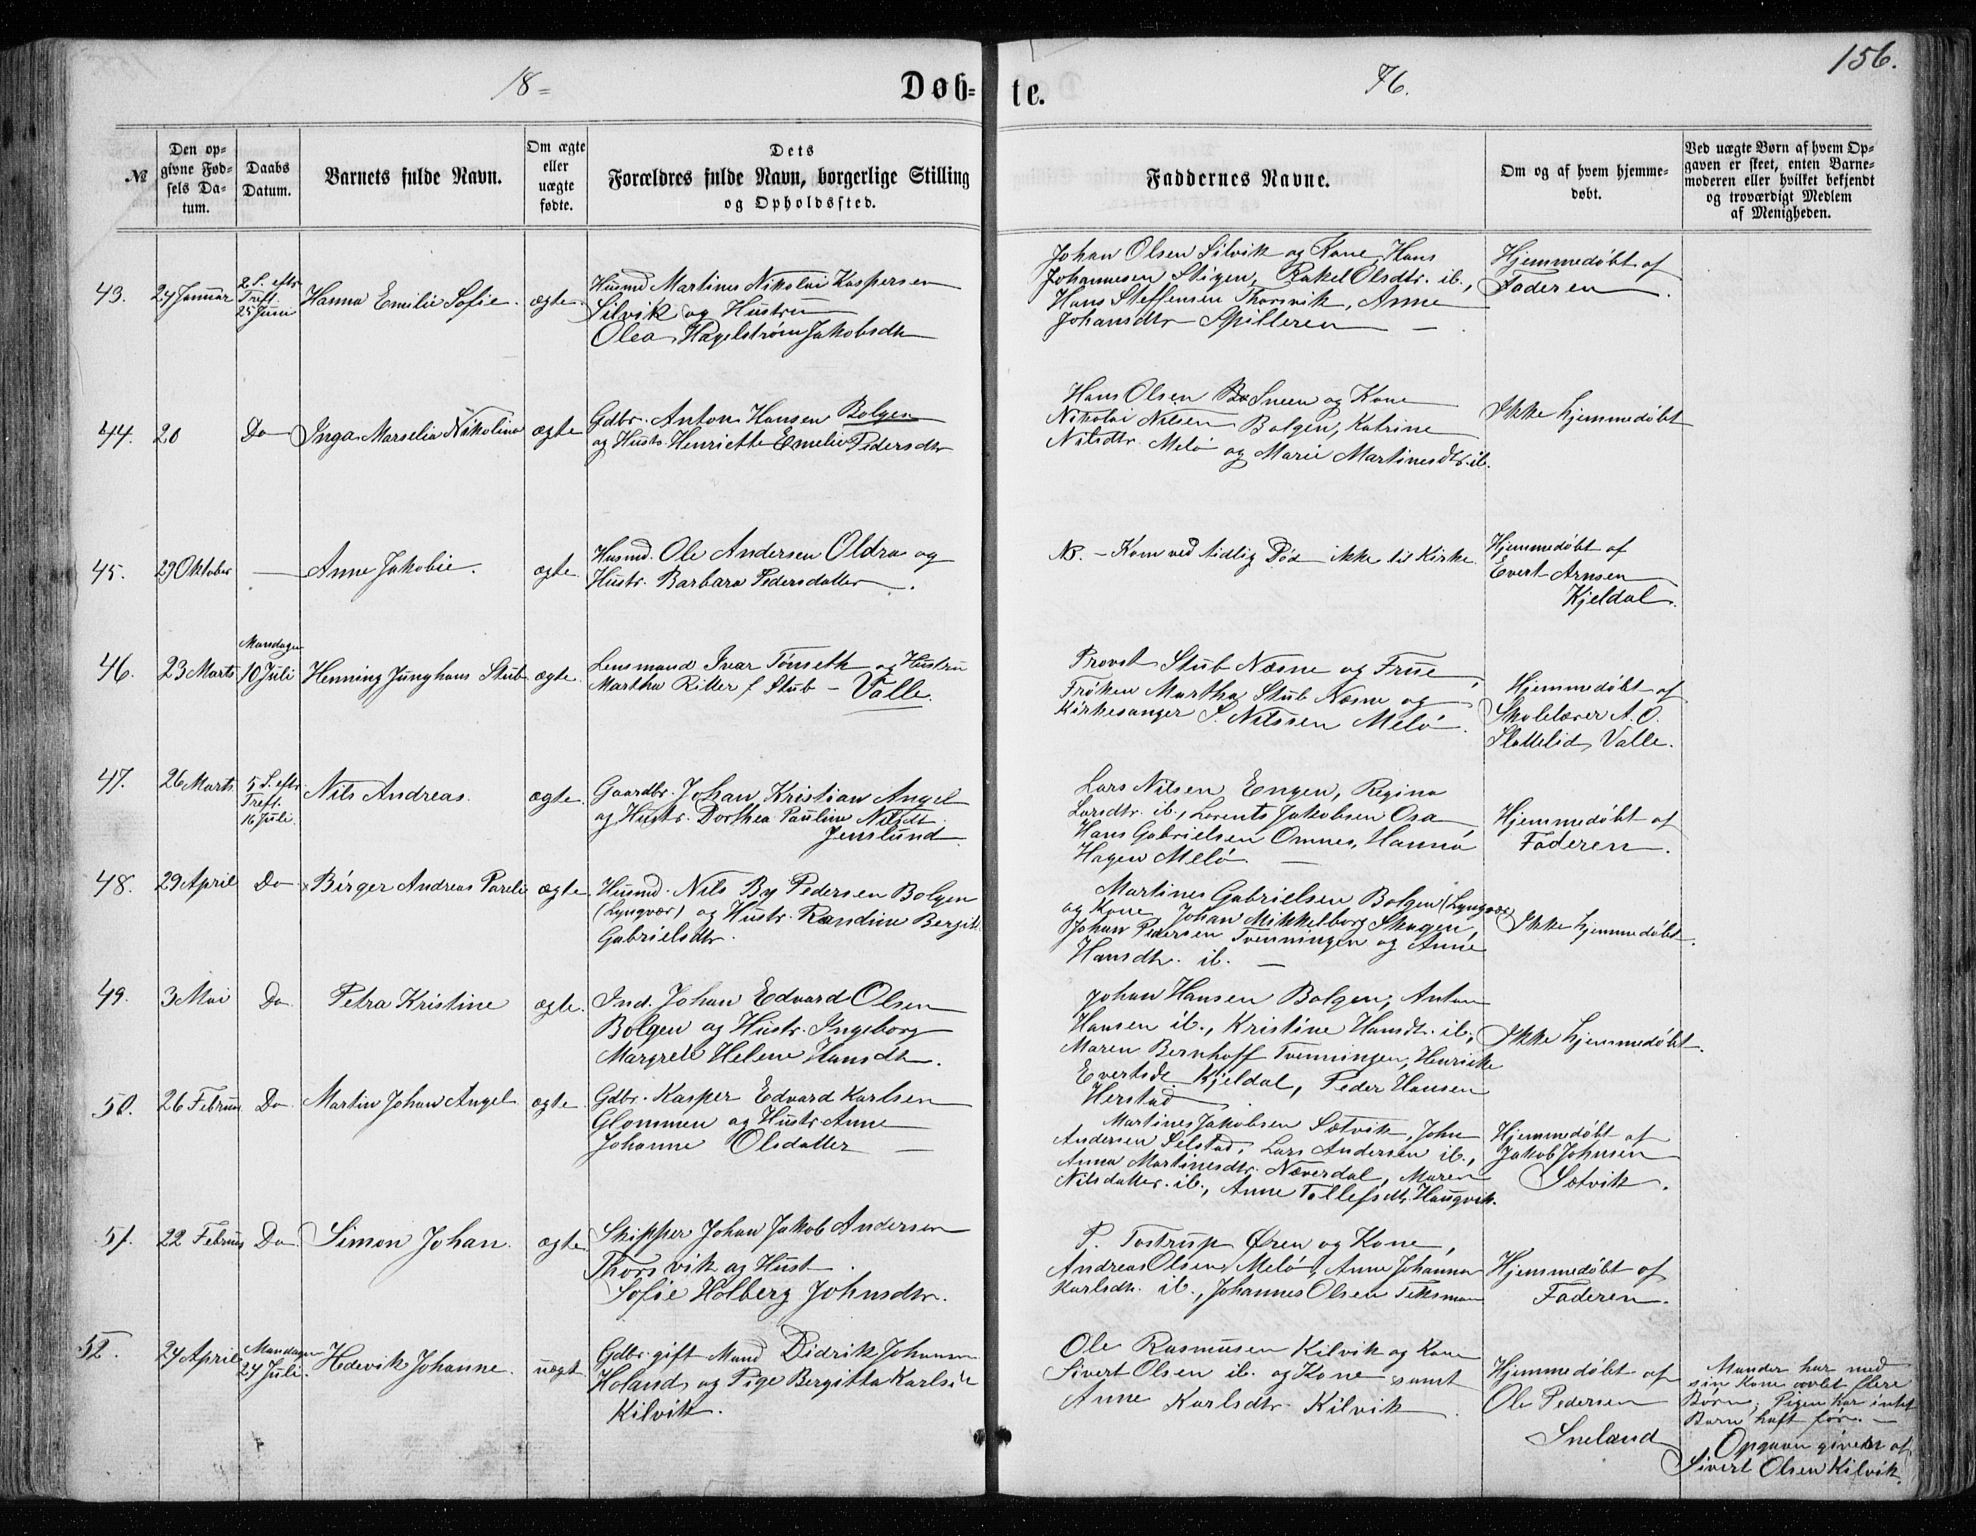 156.
18=
Døb=
te.
76.
№
Den op=
givne Fød=
sels Da=
tum.
Daabs
Datum.
Barnets fulde Navn.
Om ægte
eller
uægte
fødte.
Dets
Forældres fulde Navn, borgerlige Stilling
og Opholdssted.
Faddernes Navne.
Om og af hvem hjemme=
døbt.
Ved uægte Børn af hvem Op=
gaven er skeet, enten Barne=
moderen eller hvilket bekjendt
og troværdigt Medlem
af Menigheden.
43.
24 Januar
2 S. eftr
Tref.
25 Juni
Hanna Emilie Sofie.
ægte
Husmd Martinus Nikolai Kaspersen
Silvik og Hustru
Olea Hagelstrøm Jakobsdtr
Johan Olsen Silvik og Kone, Hans
Johannesen Stigen, Rakel Olsdtr. ib.,
Hans Steffensen Thorsvik, Anne
Johansdtr Spilleren —
Hjemmedøbt af
Faderen.
44.
20
Do
Inga Marselie Nikolina
ægte
Gdbr. Anton Hansen Bolgen
og Hustr. Henriette Emelie Pedersdtr
Hans Olsen Sneen og Kone
Nikolai Nilsen Bolgen, Katrine
Nilsdtr. Melø og Marie Martinesdtr. ib.
Ikke hjemmedøbt
45.
29 Oktober
—
Anne Jakobie.
ægte
Husmd. Ole Andersen Oldra og
Hustr. Barbara Pedersdatter.
NB. — Kom ved tidlig Død ikke til Kirke.
Hjemmedøbt af
Evert Arnsen
Kjeldal.
46.
23 Marts
Mandagen
10 Juli
Henning Junghans Stub
ægte.
Lensmand Ivar Tønseth og Hustru
Martha Ritter f Stub — Valle.
Provst Stub Næsne og Frue,
Frøken Martha Stub Næsne og
Kirkesanger S. Nilssen Melø.
Hjemmedøbt af
Skolelærer A. O.
Slottelid, Valle.
47.
26 Marts
5 S. eftr
Tref.
16 Juli.
Nils Andreas.
ægte.
Gaardbr. Johan Kristian Angel
og Hustr. Dorthea Pauline Nilsdt.
Jenslund.
Lars Nilsen Engen, Regina
Larsdtr. ib., Lorents Jakobsen Osa,
Hans Gabrielsen Omnes, Hanna
Hagen Melø. —
Hjemmedøbt af
Faderen.
48.
29 April
Do
Birger Andreas Pareli
ægte
Husmd. Nils By Pedersen Bolgen
(Lyngvær) og Hustr. Randine Bergit.
Gabrielsdtr.
Martines Gabrielsen Bolgen (Lyngvær)
og Kone, Johan Mikkelborg Skagen,
Johan Pedersen Tvenningen og Anne
Hansdtr. ib. —
Ikke hjemmedøbt.
49.
3 Mai
Do
Petra Kristine
ægte.
Ind. Johan Edvard Olsen
Bolgen og Hustr. Ingeborg
Margrete Helene Hansdtr.
Johan Hansen Bolgen, Anton
Hansen ib., Kristine Hansdt. ib.,
Maren Bernhoff Tvenningen, Henrikke
Evertsdt. Kjeldal, Peder Hansen
Herstad
Ikke hjemmedøbt.
50.
26 Februar
Do
Martin Johan Angel
ægte.
Gdbr. Kasper Edvard Karlsen
Glommen og Hustr Anne
Johanne Olsdatter —
Martines Jakobsen Sætvik, John
Andersen Selstad, Lars Andersen ib.,
Anna Martinesdtr. Næverdal, Maren
Nilsdatter ib., Anne Tollefsdtr. Haugvik.
Hjemmedøbt af
Jakob Johnsen
Sætvik.
51.
22 Februar
Do
Simon Johan.
ægte
Skipper Johan Jakob Andersen
Thorsvik og Hust.
Sofie Holberg Johnsdtr.
P. Tostrup Øren og Kone,
Andreas Olsen Melø, Anne Johanna
Karlsdtr. ib., Johannes Olsen Teksmon
Hjemmedøbt af
Faderen.
52.
24 April
Mandagen
24 Juli.
Hedevik Johanne.
uægt
Gdbr. gift Mand Didrik Johansen
Holand og Pige Bergitta Karlsdtr
Kilvik.
Ole Rasmusen Kilvik og Kone
Sivert Olsen ib. og Kone samt
Anne Karlsdtr. Kilvik.
Hjemmedøbt af
Ole Pedersen
Sneland
Manden har med
sin Kone avlet flere
Børn; Pigen har intet
Barn haft før. —
Opgaven given af
Sivert Olsen Kilvik.